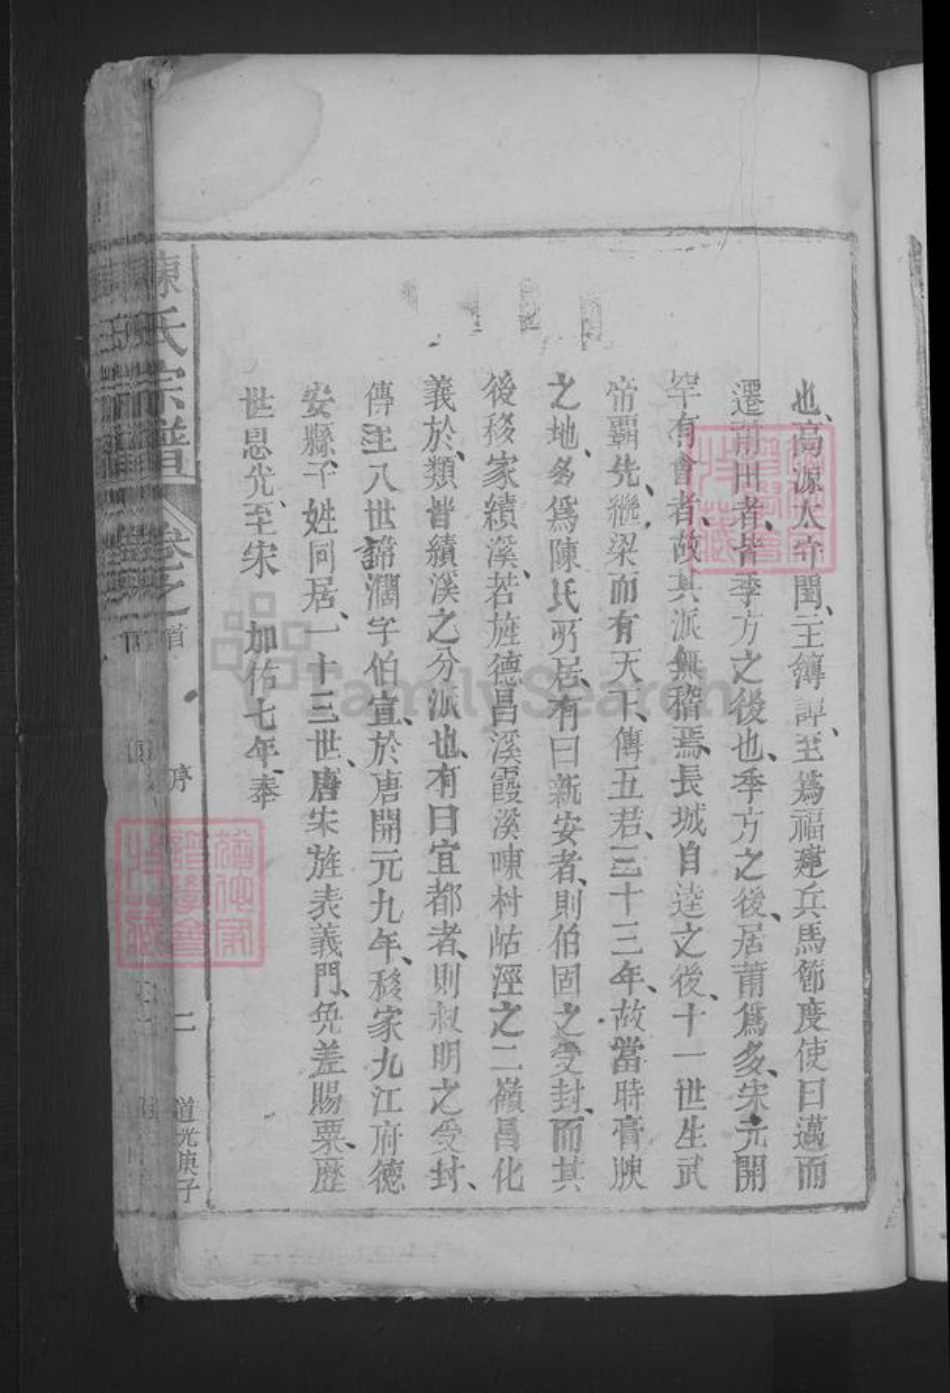 也、高源太守閩、主簿譚、至為福建兵馬節度使曰邁而
遷莆田者、皆季方之後也、季方之後、居莆為多、宋元開
罕有會者、故其派無稽焉、長城自逵之後、十一世生武
帝霸先、繼梁而有天下、傳五君、三十三年、故當時膏腴
之地、多為陳氏所居、有曰新安者、則伯固之受封、而其
後移家績溪、若旌德昌溪霞溪 村岵涇之二嶺昌化
義於、類皆績溪之分派也、有曰宜都者、則叔明之受封、
傳至八世諱濶字伯宣、於唐開元九年、移家九江府德
安縣、千姓同居、一十三世、唐宋旌表義門、免差賜粟、歷
世恩光、至宋 加佑七年、奉
陳氏宗譜 卷之首 序 二 道光庚子
FamilySearch